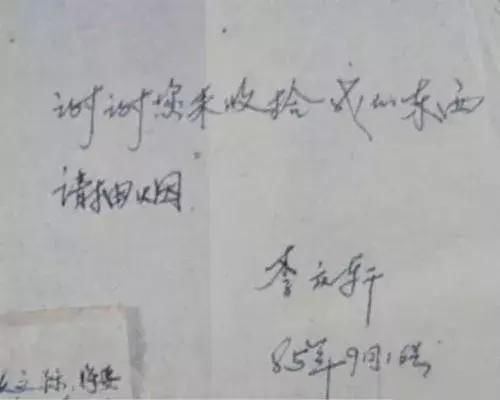 谢谢您来收拾我的东西
请抽烟
李文轩
85年9月16号